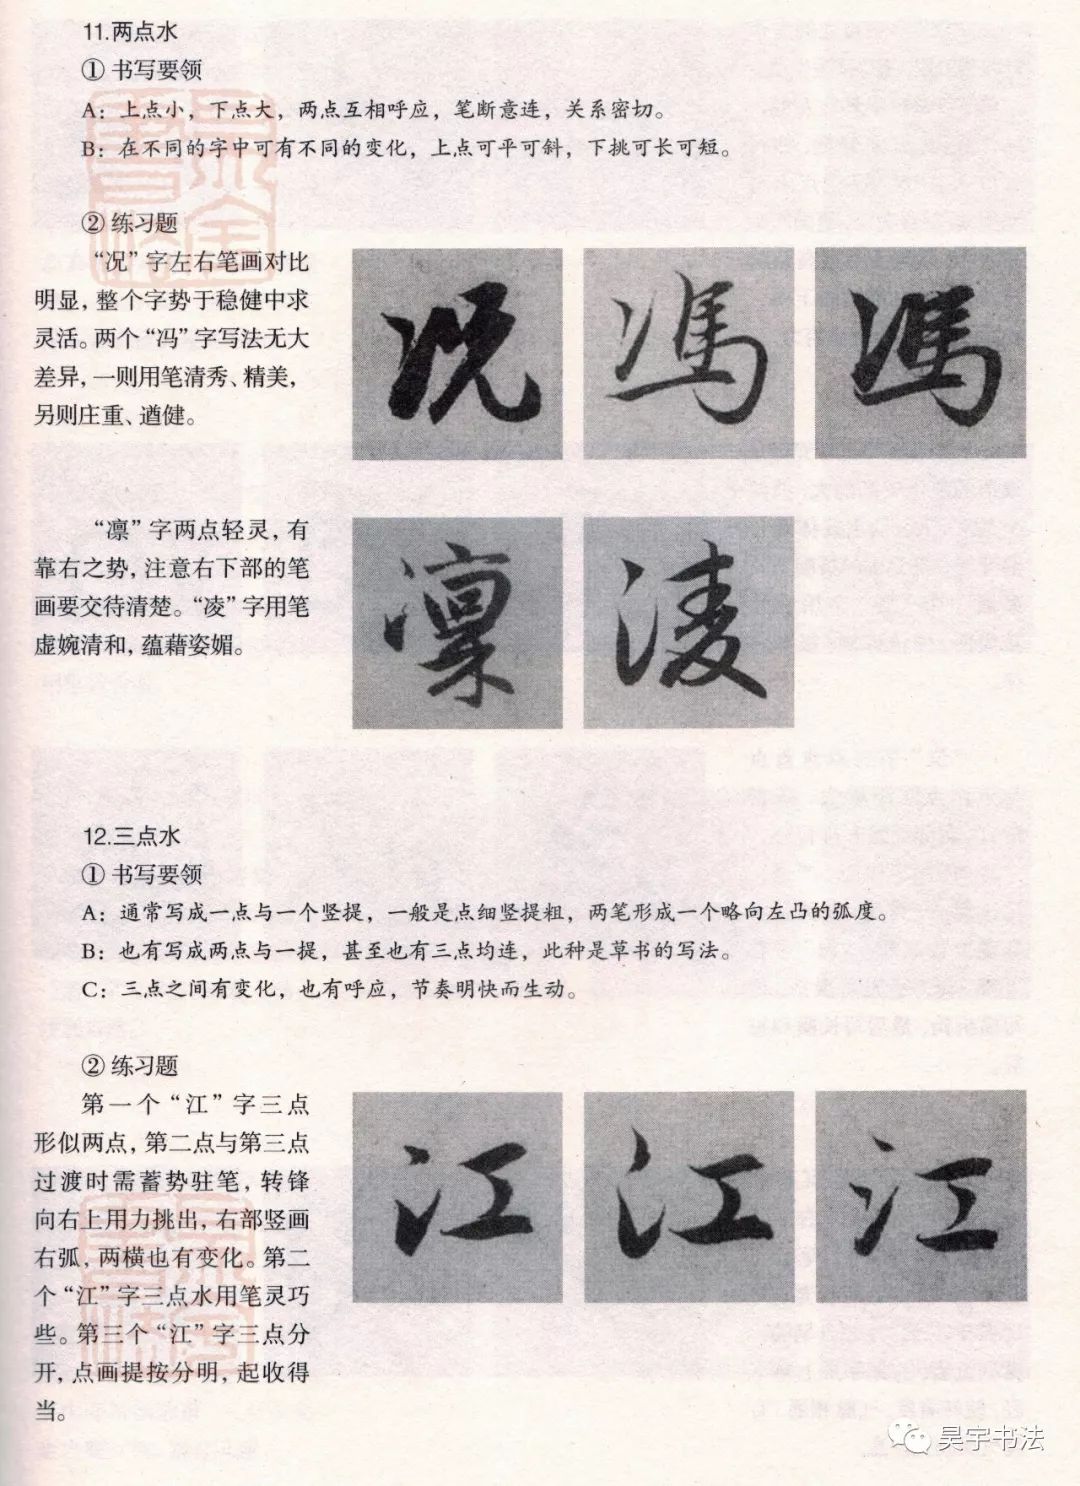 11.两点水
① 书写要领
A：上点小，下点大，两点互相呼应，笔断意连，关系密切。
B：在不同的字中可有不同的变化，上点可平可斜，下挑可长可短。
② 练习题
“况”字左右笔画对比
明显，整个字势于稳健中求
灵活。两个“冯”字写法无大
差异，一则用笔清秀、精美，
另则庄重、遒健。
况 馮 馮
“凛”字两点轻灵，有
靠右之势，注意右下部的笔
画要交待清楚。“凌”字用笔
虚婉清和，蕴藉姿媚。
凛 凌
12.三点水
① 书写要领
A：通常写成一点与一个竖提，一般是点细竖提粗，两笔形成一个略向左凸的弧度。
B：也有写成两点与一提，甚至也有三点均连，此种是草书的写法。
C：三点之间有变化，也有呼应，节奏明快而生动。
② 练习题
第一个“江”字三点
形似两点，第二点与第三点
过渡时需蓄势驻笔，转锋
向右上用力挑出，右部竖画
右弧，两横也有变化。第二
个“江”字三点水用笔灵巧
些。第三个“江”字三点分
开，点画提按分明，起收得
当。
江 江 江
昊宇书法